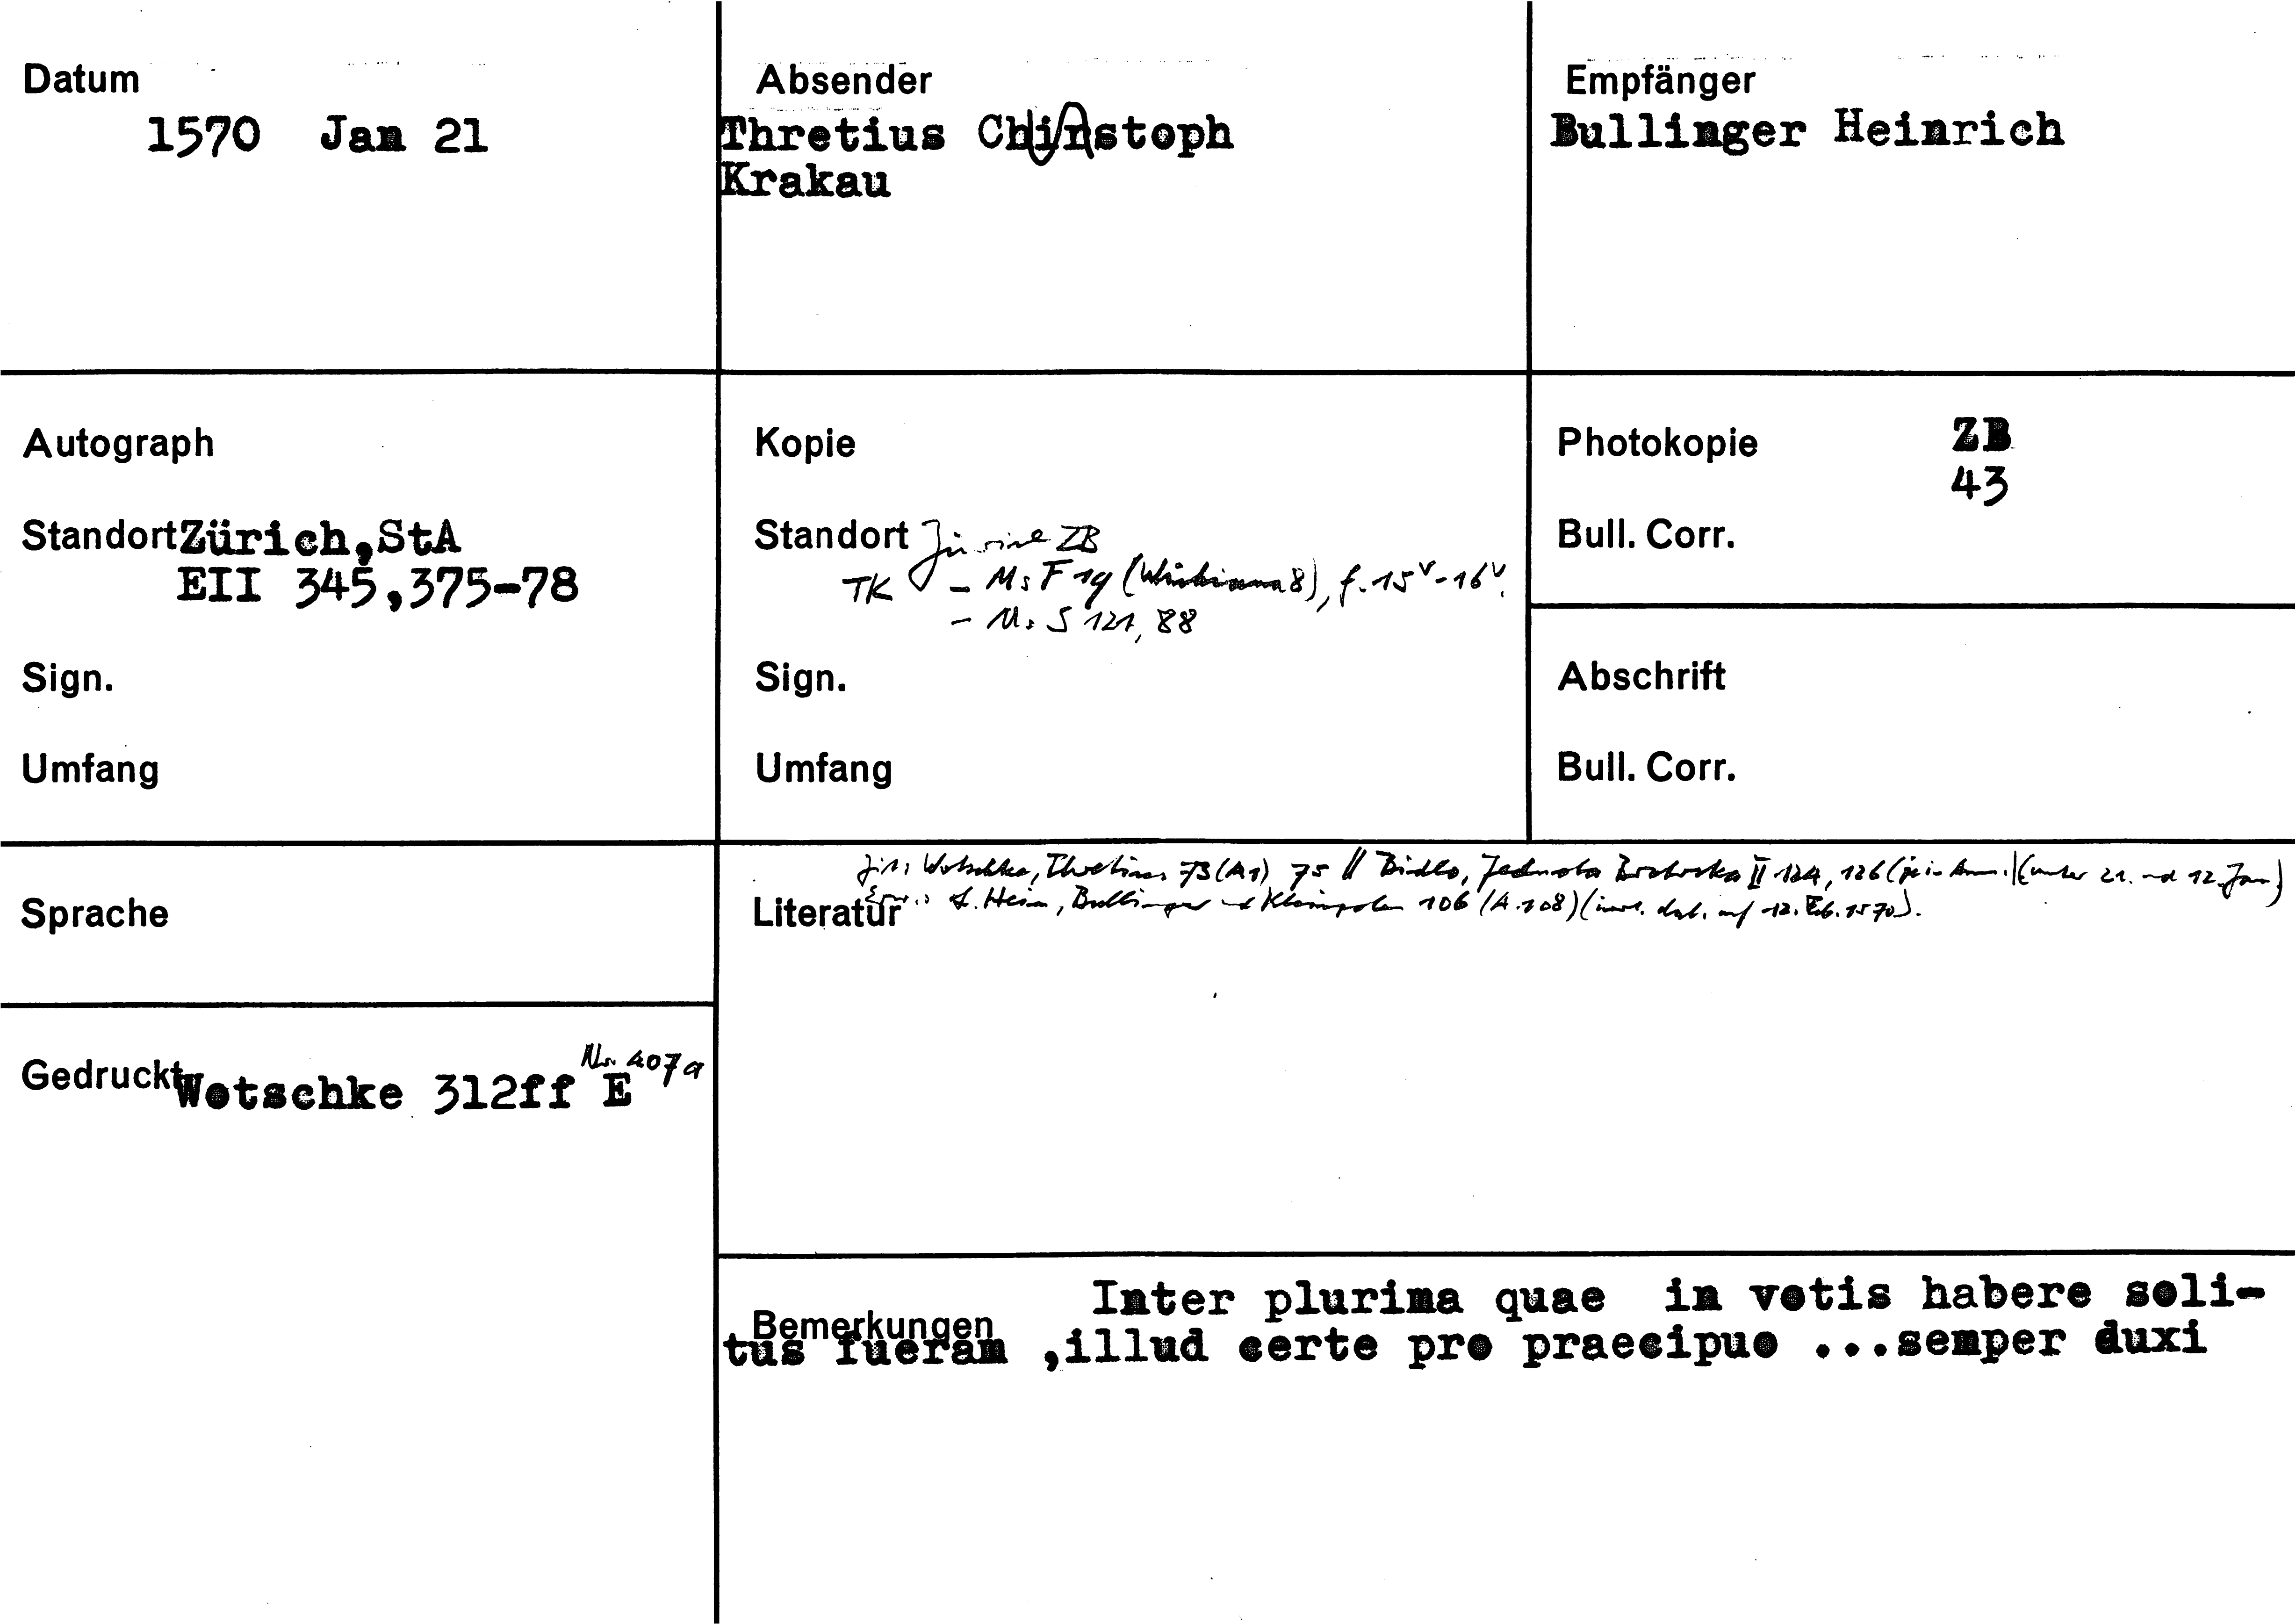 Datum
1570 Jan 21
Absender
Thretius Christoph
Krakau
Empfänger
Bullinger Heinrich
Autograph
Standort Zürich, StA
EII 345,375-78
Sign.
Umfang
Kopie
Standort Zürich ZB
TK - Ms F 19 8), f. 15v-16v.
- Ms S 121, 88
Sign.
Umfang
Photokopie ZB
43
Bull. Corr.
Abschrift
Bull. Corr.
Sprache
Gedruckt Wotschke 312ff E Nr. 407a
Zit: Wotschke, Thretius 73 (A1) 75 // Bidlo, Jednota Bratrska II 124, 126 (je in Anm.) (unter 21. und 12. Jan.)
Literatur Erw.: S. Hein, Bullinger und Kleinpolen 106 (A. 108) dat. auf 12. Feb. 1570).
Bemerkungen Inter plurima quae in votis habere soli-
tus fueram ,illud certe pro praecipuo ...semper duxi